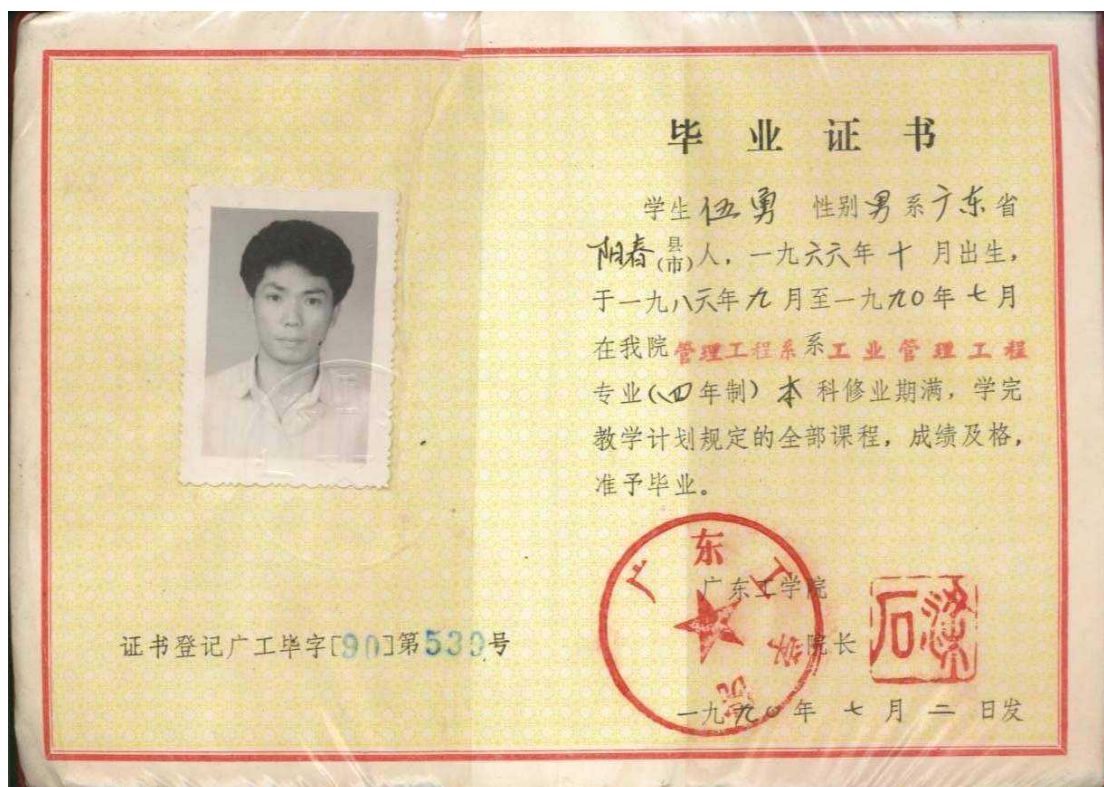 毕业证书
学生伍勇 性别男系广东省
阳春县(市)人，一九六六年十月出生，
于一九八六年九月至一九九0年七月
在我院管理工程系系工业管理工程
专业(四年制)本科修业期满，学完
教学计划规定的全部课程，成绩及格，
准予毕业。
广东工学院
广东工学院
院长
证书登记广工毕字[90]第539号
一九九0年七月二日发